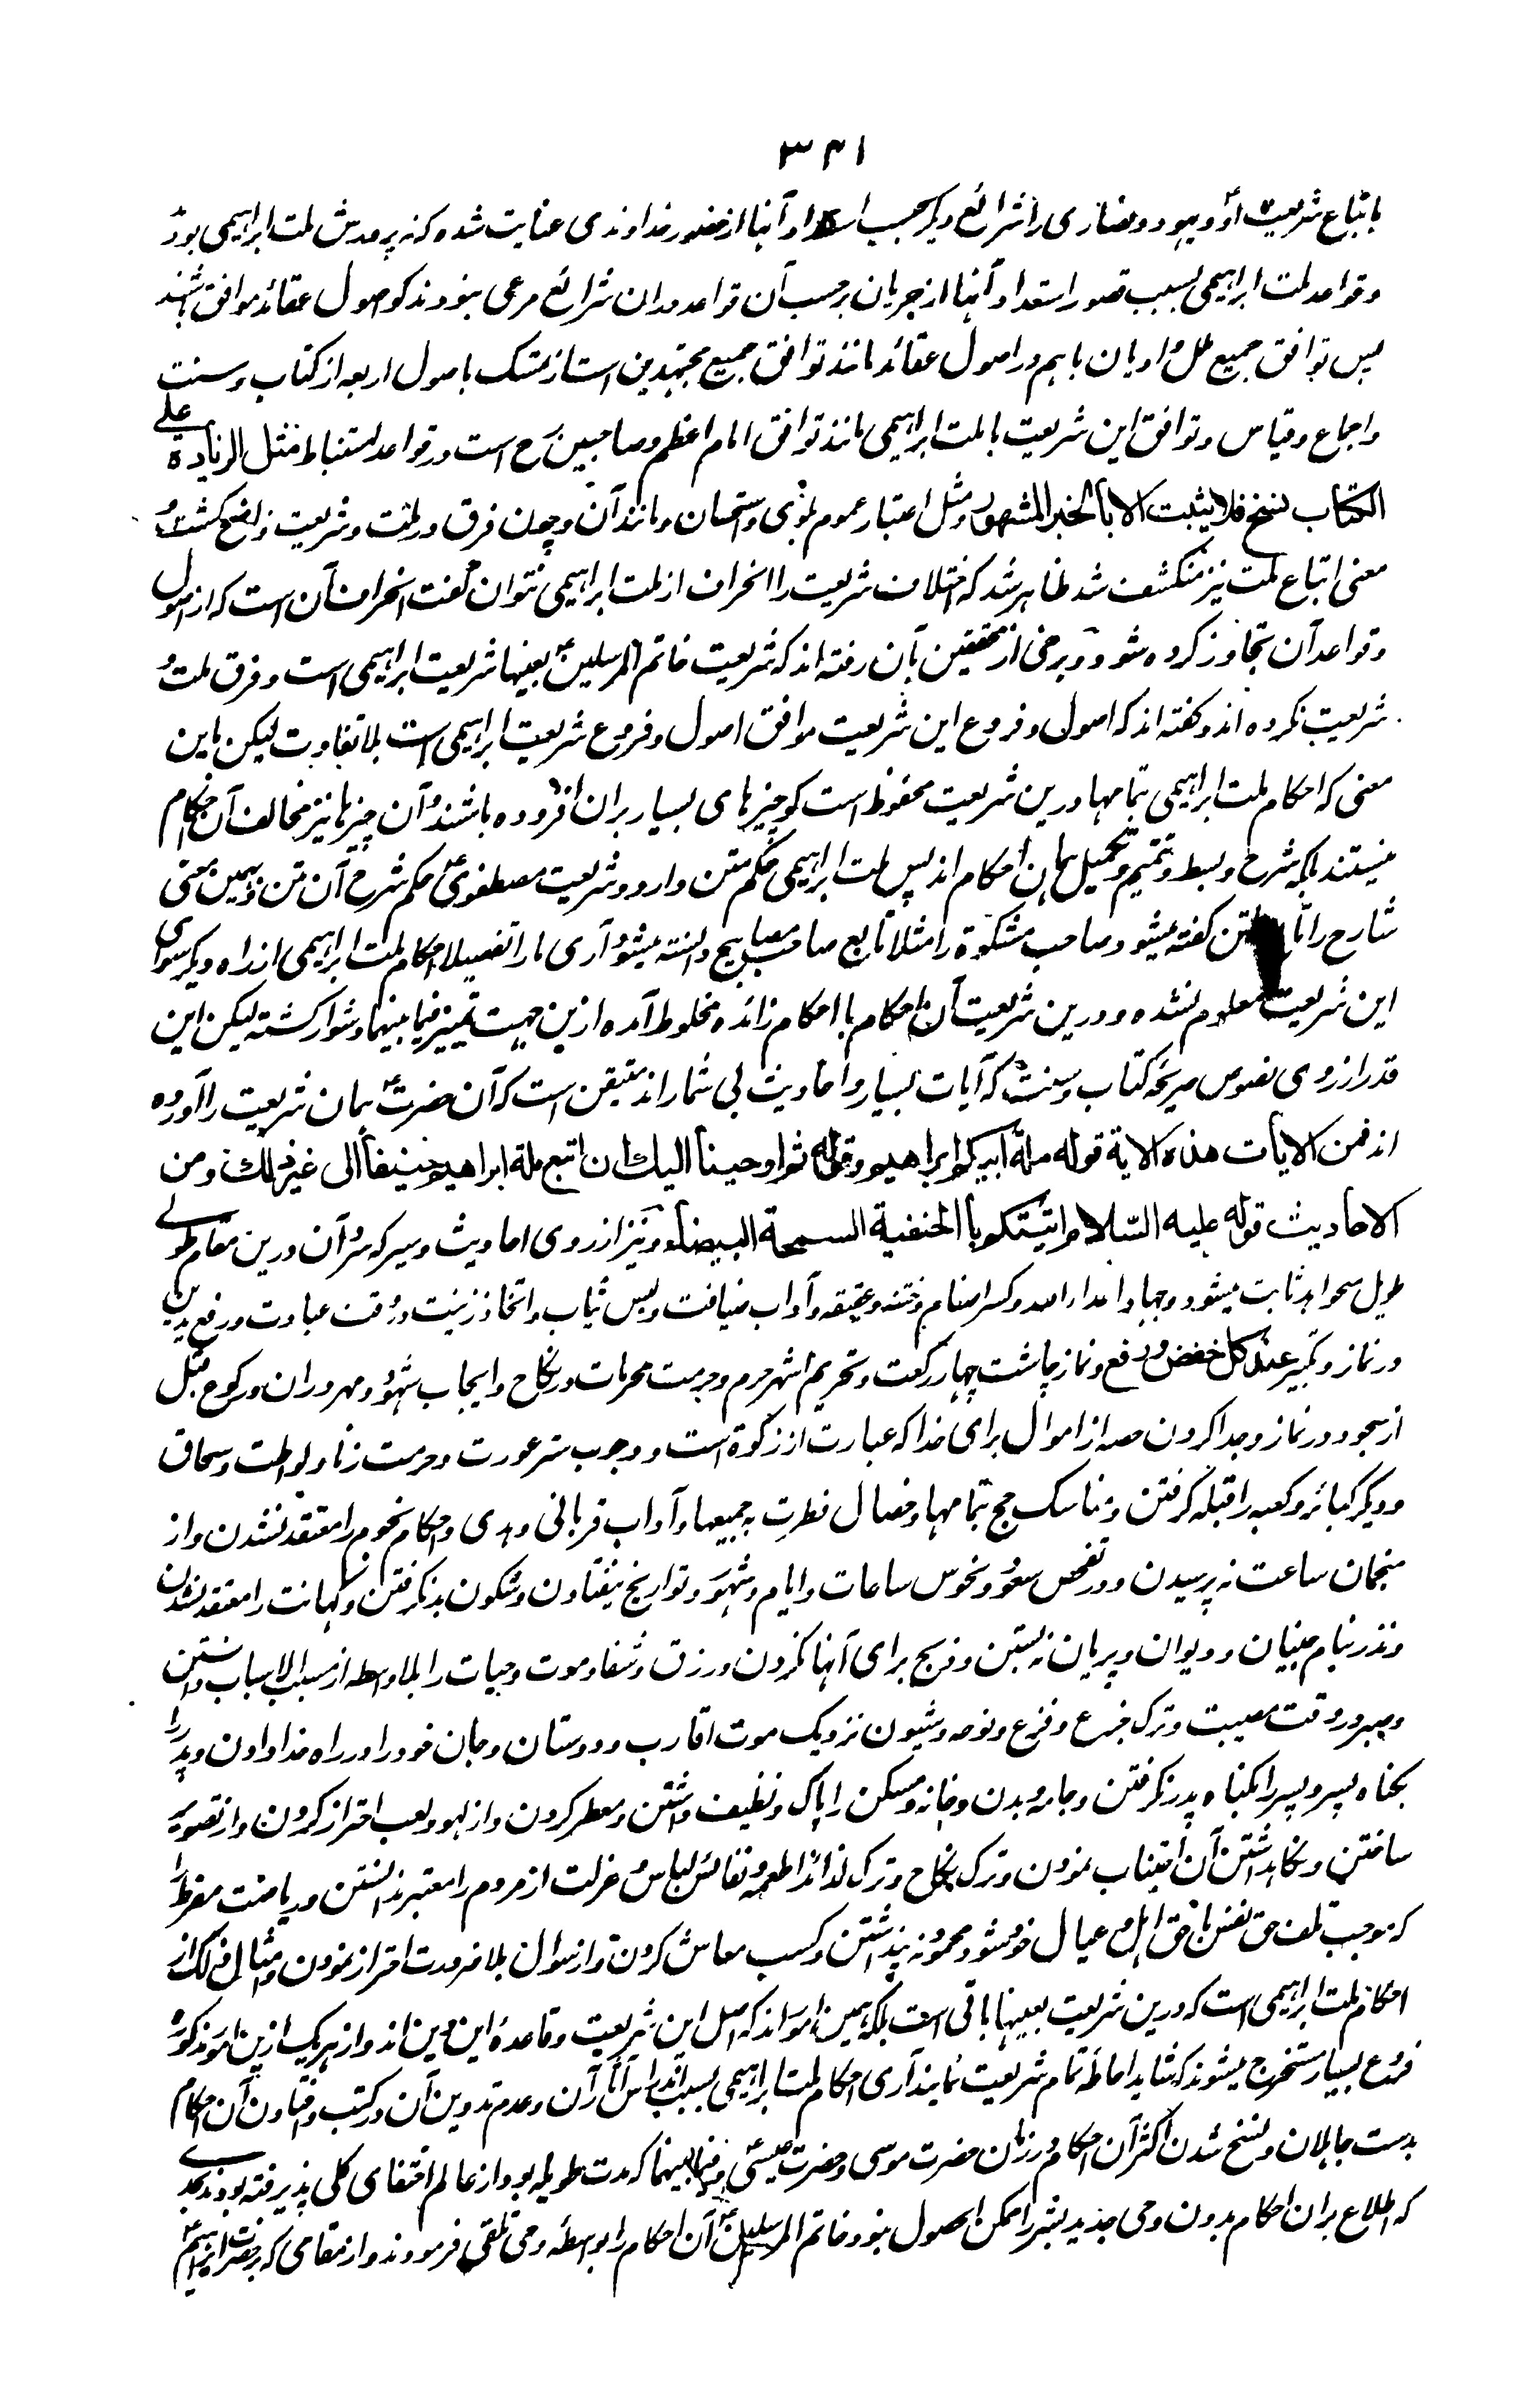 ۳۴۱
باتباع شریعت او و یهود و نصاری را شرائع دیگر بحسب استعداد آنها از حضور خداوندی عنایت شده که نه بر حدش ملت ابراهیمی بود
و قواعد ملت ابراهیمی بسبب قصور استعداد آنها از جریان بر حسب آن قواعد در ان شرائع مرعی نبودند کو اصول عقائد موافق باشند
پس توافق جمیع ملل و ادیان باهم در اصول عقائد مانند توافق جمیع مجتهدین است از تمسک باصول اربعه از کتاب و سنت
و اجماع و قیاس و توافق این شریعت با ملت ابراهیمی مانند توافق امام اعظم و صاحبین رح است در قواعد استنباط مثل الزیادة علی
الکتاب نسخ فلا یثبت الا بالخبر المشهور و مثل اعتبار عموم بلوی و استحسان و مانند آن و چون فرق در ملت و شریعت واضح گشت و
معنی اتباع ملت نیز منکشف شد ظاهر شد که اختلاف شریعت را انحراف از ملت ابراهیمی نتوان گفت انحراف آن است که از اصول
و قواعد آن تجاوز کرده شود و برخی از محققین بآن رفته اند که شریعت خاتم المرسلین بعینها شریعت ابراهیمی است و فرق ملت و
شریعت نکرده اند و گفته اند که اصول و فروع این شریعت موافق اصول و فروع شریعت ابراهیمی است بلا تفاوت لیکن باین
معنی که احکام ملت ابراهیمی بتمامها درین شریعت محفوظ است کو چیزهای بسیار بران افزوده باشند و آن چیزها نیز مخالف آن احکام
نیستند بلکه شرح و بسط و تتمیم و تکمیل همان احکام اند پس ملت ابراهیمی حکم متن دارد و شریعت مصطفوی حکم شرح آن متن و بهمین معنی
شارح را تابع متن گفته میشود و صاحب مشکوة را مثلا تابع صاحب مصابیح دانسته میشود آری ما را تفصیلا احکام ملت ابراهیمی از راه دیگر سوای
این شریعت معلوم نشده و درین شریعت آن احکام با احکام زائده مخلوط آمده ازین جهت تمییز فیما بینهما دشوار گشته لیکن این
قدر از روی نصوص صریحه کتاب و سنت که آیات بسیار و احادیث بی شمار اند متیقن است که آن حضرت همان شریعت را آورده
اند فمن الایات هذه الایة قوله ملة ابیکم ابراهیم و قوله ثم اوحینا الیک ان اتبع ملة ابراهیم حنیفا الی غیر ذلک و من
الاحادیث قوله علیه السلام اتیتکم بالحنفیة السمحة البیضاء و نیز از روی احادیث و سیر که سرد آن درین مقام طولی
طویل میخواهد ثابت میشود و جهاد اعداء الله و کسر اصنام و ختنه و عقیقه و آداب ضیافت و لبس ثیاب و اتخاذ زینت در وقت عبادت و رفع یدین
در نماز و تکبیر عند کل خفض و رفع و نماز چاشت چهار رکعت و تحریم اشهر حرم و حرمت محرمات در نکاح و ایجاب شهود و مهر در ان و رکوع قبل
از سجود در نماز و جدا کردن حصه از اموال برای خدا که عبارت از زکوة است و وجوب ستر عورت و حرمت زنا و لواطت و سحاق
و دیگر کبائر و کعبه را قبله گرفتن و مناسک حج بتمامها و خصال فطرت به جمیعها و آداب قربانی و هدی و احکام نجوم را معتقد نشدن و از
منجمان ساعت نه پرسیدن و در تفحص سعود و نحوس ساعات و ایام و شهور و تواریخ نیفتادن و شگون بد نگرفتن و کهانت را معتقد نشدن
و نذر بنام جنیان و دیوان و پریان نه بستن و ذبح برای آنها نکردن و رزق و شفا و موت و حیات را بلا واسطه از مسبب الاسباب دانستن
و صبر در وقت مصیبت و ترک جزع و فزع و نوحه و شیون نزدیک موت اقارب و دوستان و جان خود را در راه خدا دادن و پدر را
بگناه پسر و پسر را بگناه پدر نگرفتن و جامه و بدن و خانه و مسکن را پاک و نظیف داشتن و معطر کردن و از لهو و لعب احتراز کردن و از تصویر
ساختن و نگاهداشتن آن اجتناب نمودن و ترک نکاح و ترک لذائذ اطعمه و نفائس لباس و عزلت از مردم را معتبر ندانستن و ریاضت مفرط را
که موجب تلف حق نفس یا حق اهل و عیال خود شود محمود نه پنداشتن و کسب معاش کردن و از سوال بلا ضرورت احتراز نمودن و امثال ذلک از
احکام ملت ابراهیمی است که درین شریعت بعینها باقی است بلکه همین امور اند که اصل این شریعت و قاعده این دین اند و از هر یک ازین امور مذکوره
فروع بسیار مستخرج میشوند که شاید احاطه تمام شریعت نمایند آری احکام ملت ابراهیمی بسبب اندراس آثار آن و عدم تدوین آن در کتب و افتادن آن احکام
بدست جاهلان و نسخ شدن اکثر آن احکام در زمان حضرت موسی و حضرت عیسی و فیما بینهما که مدت طویله بود از عالم اختفای کلی پذیرفته بودند بحدی
که اطلاع بران احکام بدون وحی جدید بشر را ممکن الحصول نبود و خاتم المرسلین آن احکام را بواسطه وحی تلقی فرمودند و از مقامی که حضرت ابراهیم